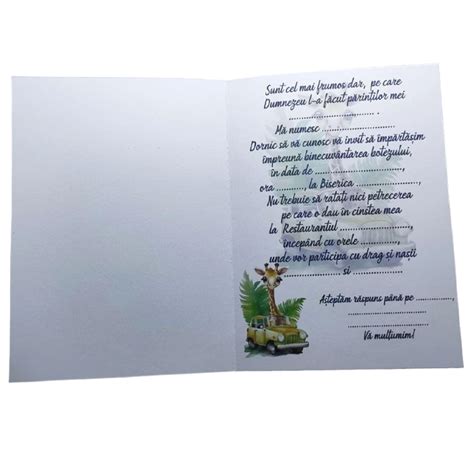 Sunt cel mai frumos dar, pe care
Dumnezeu l-a făcut părinților mei
........................... .
Mă numesc ......................
Dornic să vă cunosc vă invit să împărtășim
împreună binecuvântarea botezului,
în data de ......................,
ora ..........., la Biserica ......................,
Nu trebuie să ratați nici petrecerea
pe care o dau în cinstea mea
la Restaurantul ......................,
începând cu orele ..............,
unde vor participa cu drag și nașii
...................... și ......................
Așteptăm răspuns până pe .............,
......................
......................
Vă mulțumim!